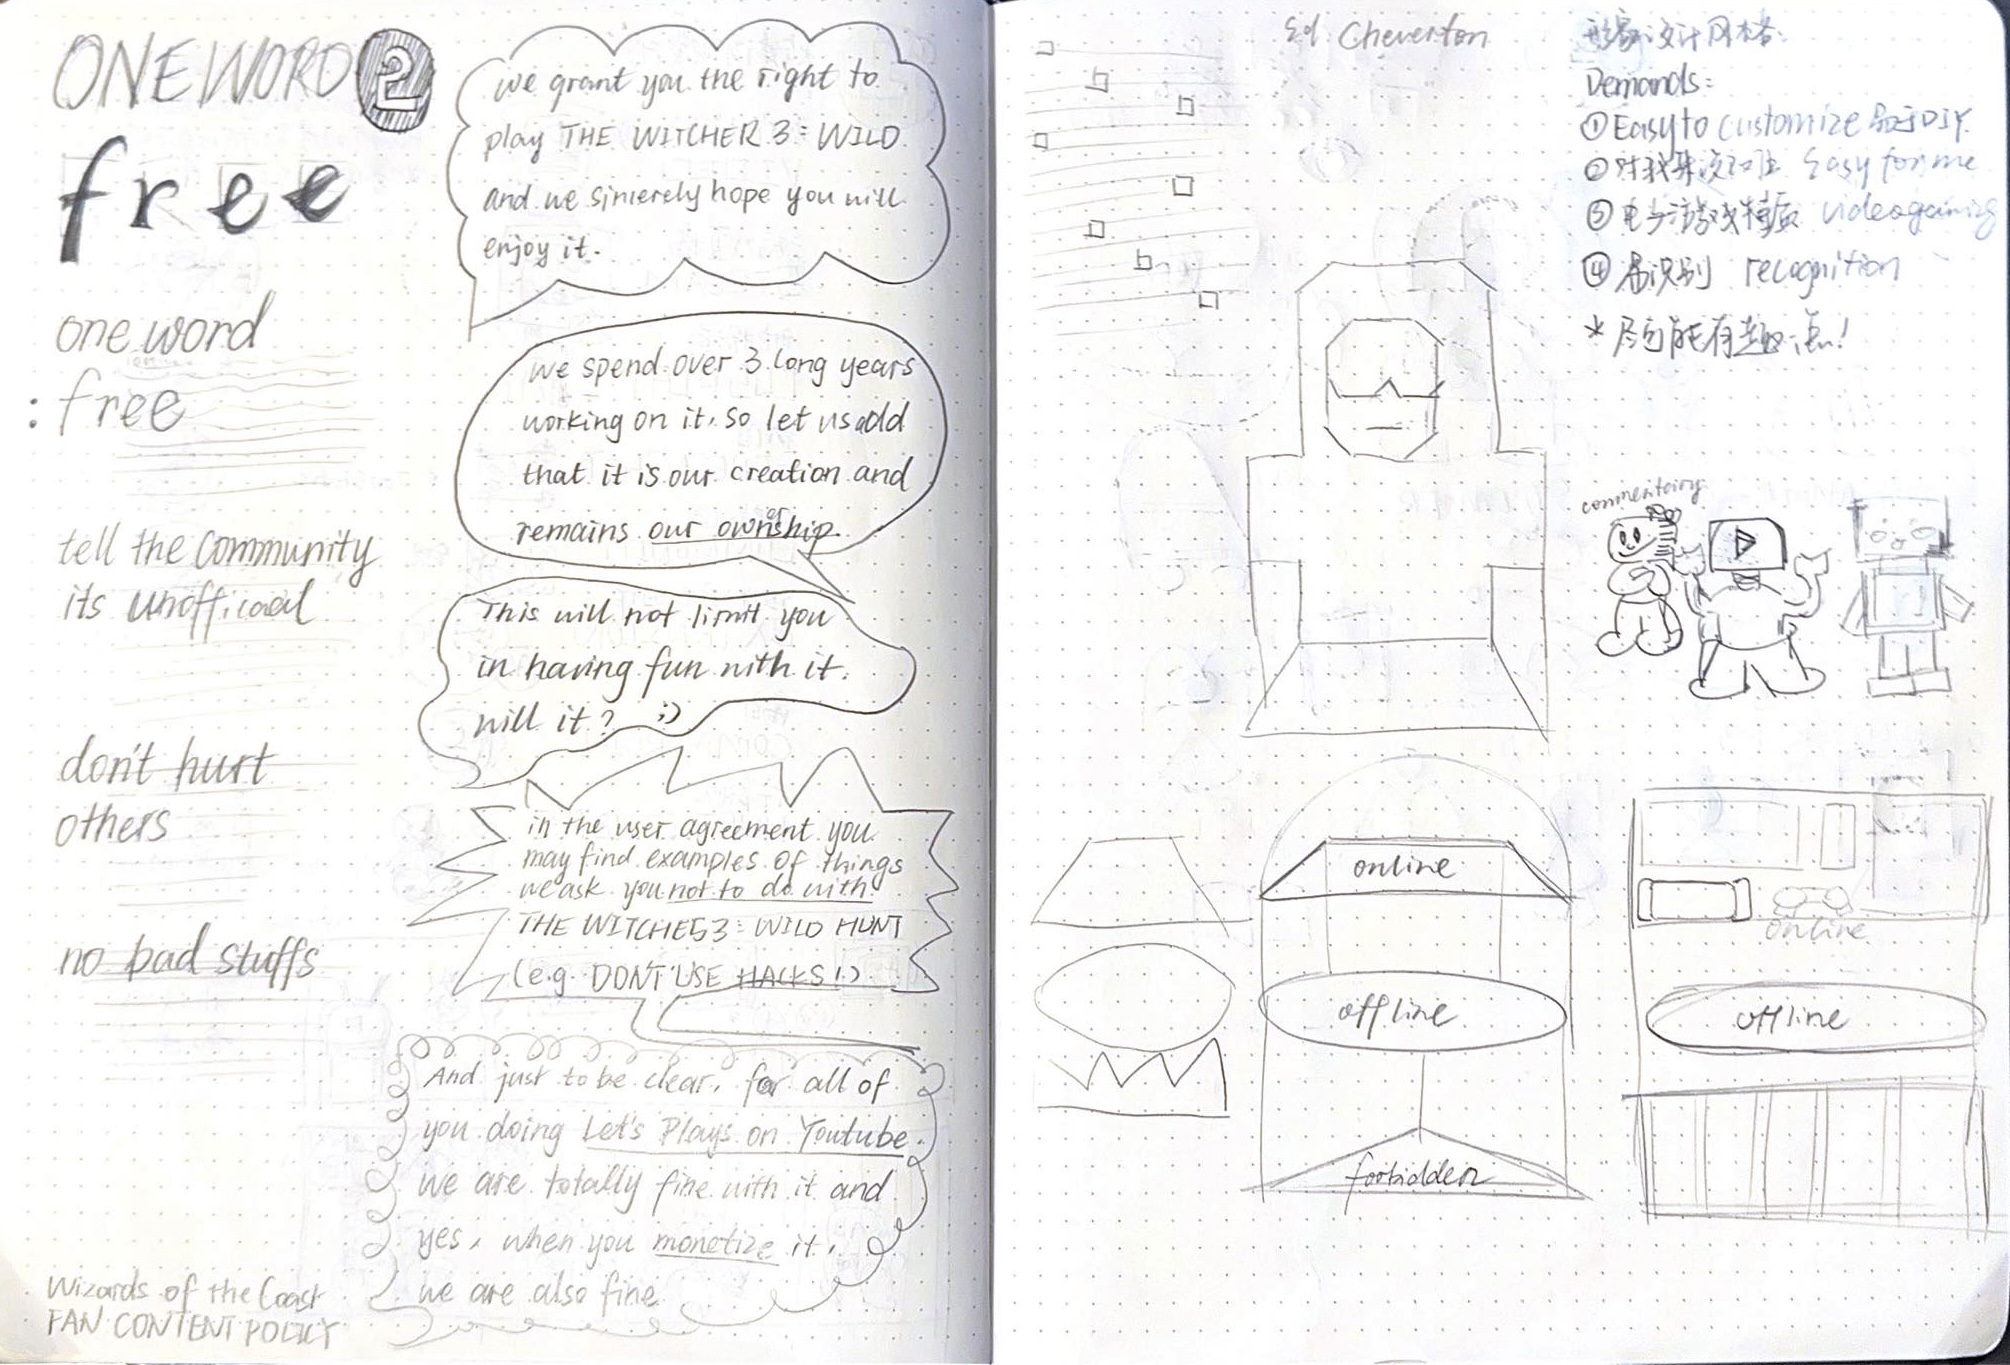 ONE WORD 2
free
one word
: free
tell the community
its unofficoal
don't hurt
others
no bad stuffs
Wizards of the Coast
FAN CONTENT POLICY
we grant you the right to
play THE WITCHER 3: WILD
and we sinierely hope you will
enjoy it.
we spend over 3 long years
working on it. so let us add
that it is our creation and
remains our ownership.
This will not limit you
in having fun with it.
will it? ;)
in the user agreement you
may find examples of things
we ask you not to do with
THE WITCHE53: WILD HUNT
(e.g. DONT'USE HACKS!)
And just to be clear, for all of
you doing Let's Plays on Youtube.
we are totally fine with it and
yes, when you monetize it,
we are also fine
Ed Cheverton
形象设计风格
Demands:
①Easy to customize 易于DIY
② 对我来说 Easy for me
③ 电子游戏 videogaming
④ 易识别 recognition
* 尽可能有趣点!
commentairy
online
offline
forbidden
online
offline